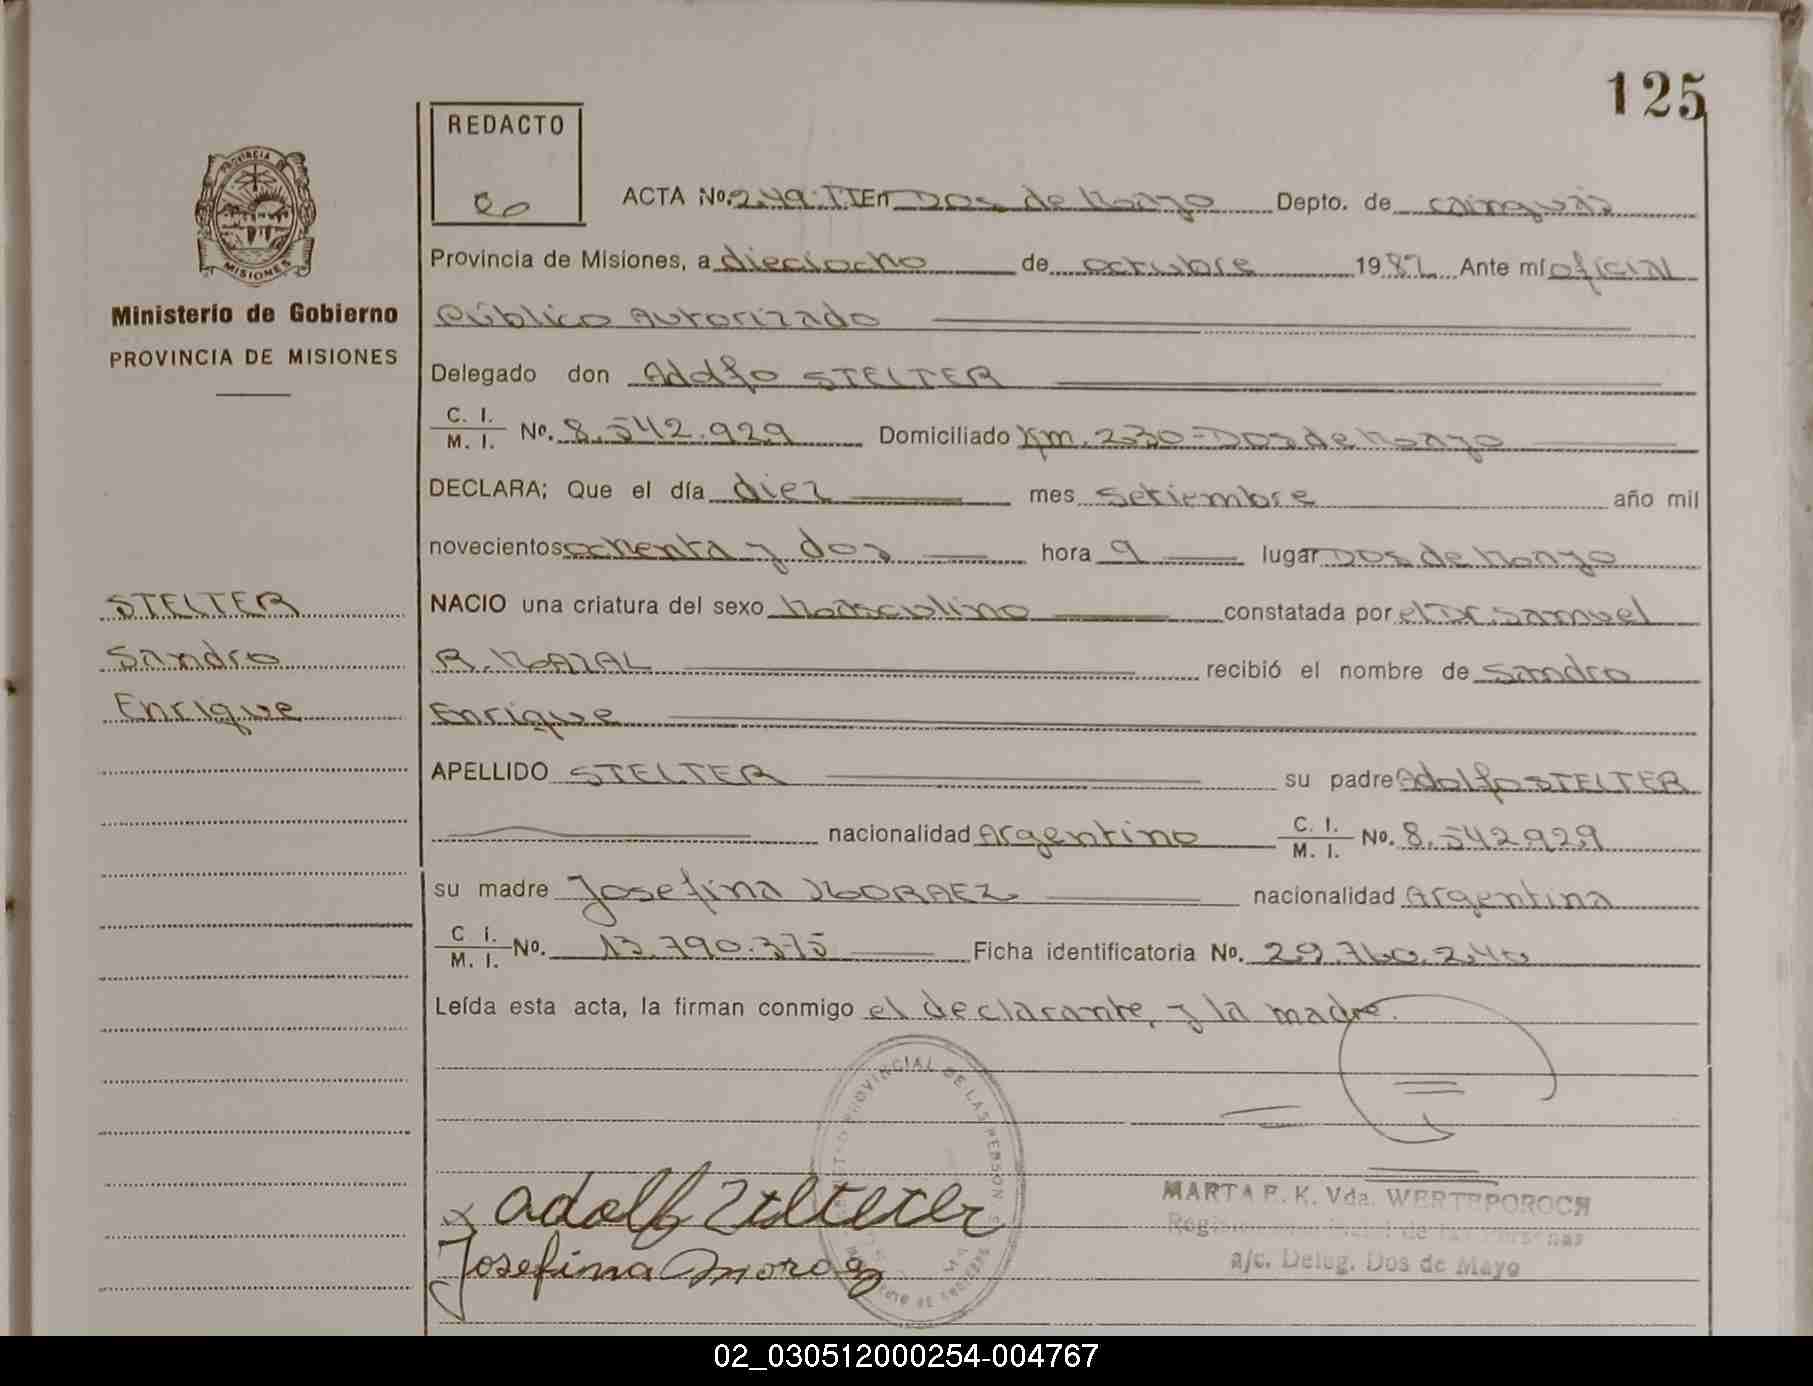 125
REDACTO
ACTA No. 249. T I En Dos de Mayo Depto. de cainguás
Provincia de Misiones, a dieciocho de octubre 1982 Ante mí oficial
Público Autorizado
Ministerio de Gobierno
PROVINCIA DE MISIONES
Delegado don Adolfo STELTER
C. I.
M. I. No. 8.542.929 Domiciliado Km. 230 - Dos de Mayo
DECLARA; Que el día diez mes Setiembre año mil
novecientos ochenta y dos hora 9 lugar Dos de Mayo
STELTER
Sandro
Enrique
NACIO una criatura del sexo Masculino constatada por el Dr. Samuel
R. MAZAL recibió el nombre de Sandro
Enrique
APELLIDO STELTER su padre Adolfo STELTER
nacionalidad Argentino C. I.
M. I. No. 8.542.929
su madre Josefina MORAEZ nacionalidad Argentina
C I.
M. I. No. 13.790.375 Ficha identificatoria No. 29.760.240
Leída esta acta, la firman conmigo el declarante, y la madre.
PROVINCIAL DE LAS PERSONAS
Adolf Stelter
Josefina Moraez
MARTA P. K. Vda. WERTEPOROCH
a/c. Deleg. Dos de Mayo
02_030512000254-004767